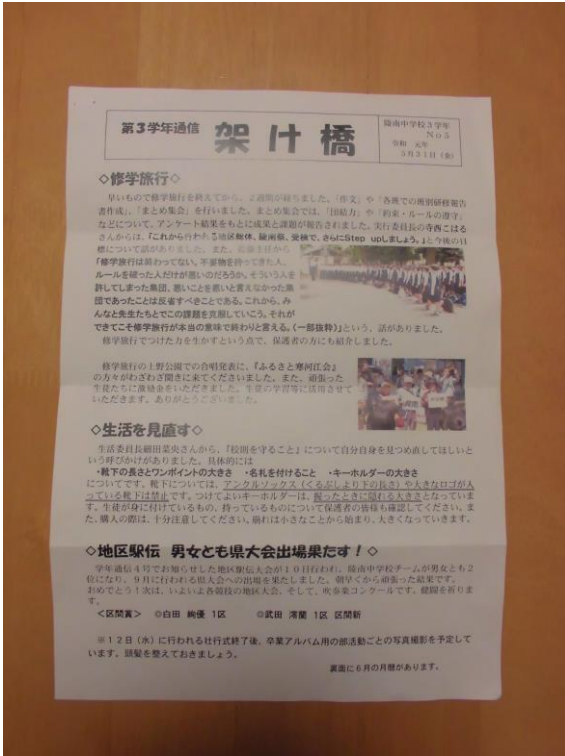 第3学年通信
架け橋
陵南中学校3学年
No5
令和 元年
5月31日(金)
◇修学旅行◇
早いもので修学旅行を終えてから、2週間が経ちました。「作文」や「各班での班別研修報告
書作成」、「まとめ集会」を行いました。まとめ集会では、「団結力」や「約束・ルールの遵守」
などについて、アンケート結果をもとに成果と課題が報告されました。実行委員長の寺西こはる
さんからは、『これから行われる地区総体、陵南祭、受検で、さらにStep upしましょう。』と今後の目
標について話がありました。また、
「修学旅行は終わってない。不要物を持ってきた人、
ルールを破った人だけが悪いのだろうか。そういう人を
許してしまった集団、悪いことを悪いと言えなかった集
団であったことは反省すべきことである。これから、み
んなと先生たちとでこの課題を克服していこう。それが
できてこそ修学旅行が本当の意味で終わりと言える。(一部抜粋)』という、話がありました。
修学旅行でつけた力を生かすという点で、保護者の方にも紹介しました。
修学旅行の上野公園での合唱発表に、『ふるさと寒河江会』
の方々がわざわざ聞きに来てくださいました。また、頑張った
生徒たちに激励金をいただきました。生徒の学習等に活用させて
いただきます。ありがとうございました。
◇生活を見直す◇
生活委員長細田菜央さんから、『校則を守ること』について自分自身を見つめ直してほしいと
いう呼びかけがありました。具体的には
・靴下の長さとワンポイントの大きさ ・名札を付けること ・キーホルダーの大きさ
についてです。靴下については、アンクルソックス(くるぶしより下の長さ)や大きなロゴが入
っている靴下は禁止です。つけてよいキーホルダーは、握ったときに隠れる大きさとなっていま
す。生徒が身に付けているもの、持っているものについて保護者の皆様も確認してください。ま
た、購入の際は、十分注意してください。崩れは小さなことから始まり、大きくなっていきます。
◇地区駅伝 男女とも県大会出場果たす!◇
学年通信4号でお知らせした地区駅伝大会が10日行われ、陵南中学校チームが男女とも2
位になり、9月に行われる県大会への出場を果たしました。朝早くから頑張った結果です。
おめでとう!次は、いよいよ各競技の地区大会、そして、吹奏楽コンクールです。健闘を祈りま
す。
<区間賞> ◎白田 絢優 1区 ◎武田 澪蘭 1区 区間新
※12日(水)に行われる壮行式終了後、卒業アルバム用の部活動ごとの写真撮影を予定して
います。頭髪を整えておきましょう。
裏面に6月の月暦があります。